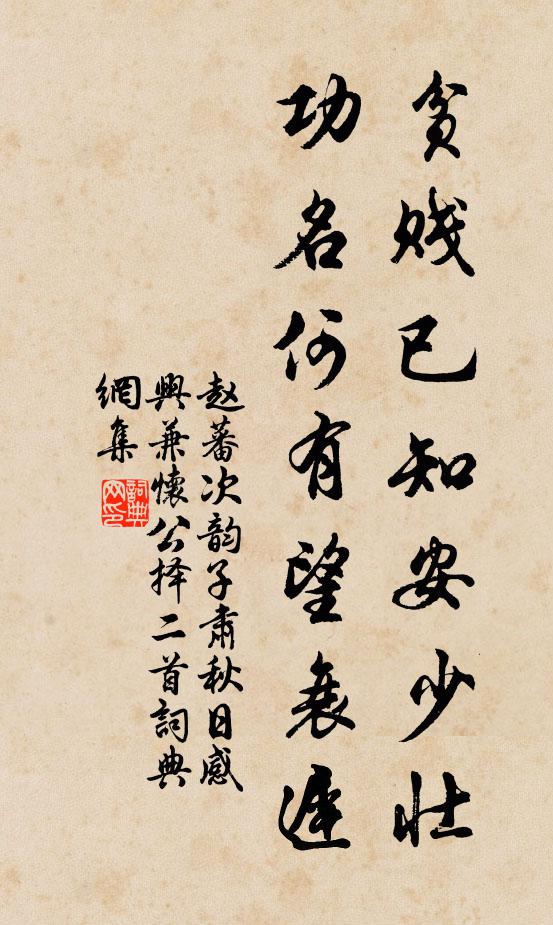 贫贱已知安少壮
功名何有望衰迟
赵蕃次韵子肃秋日感
興兼懷公择二首詞典
網集
詞典
网印